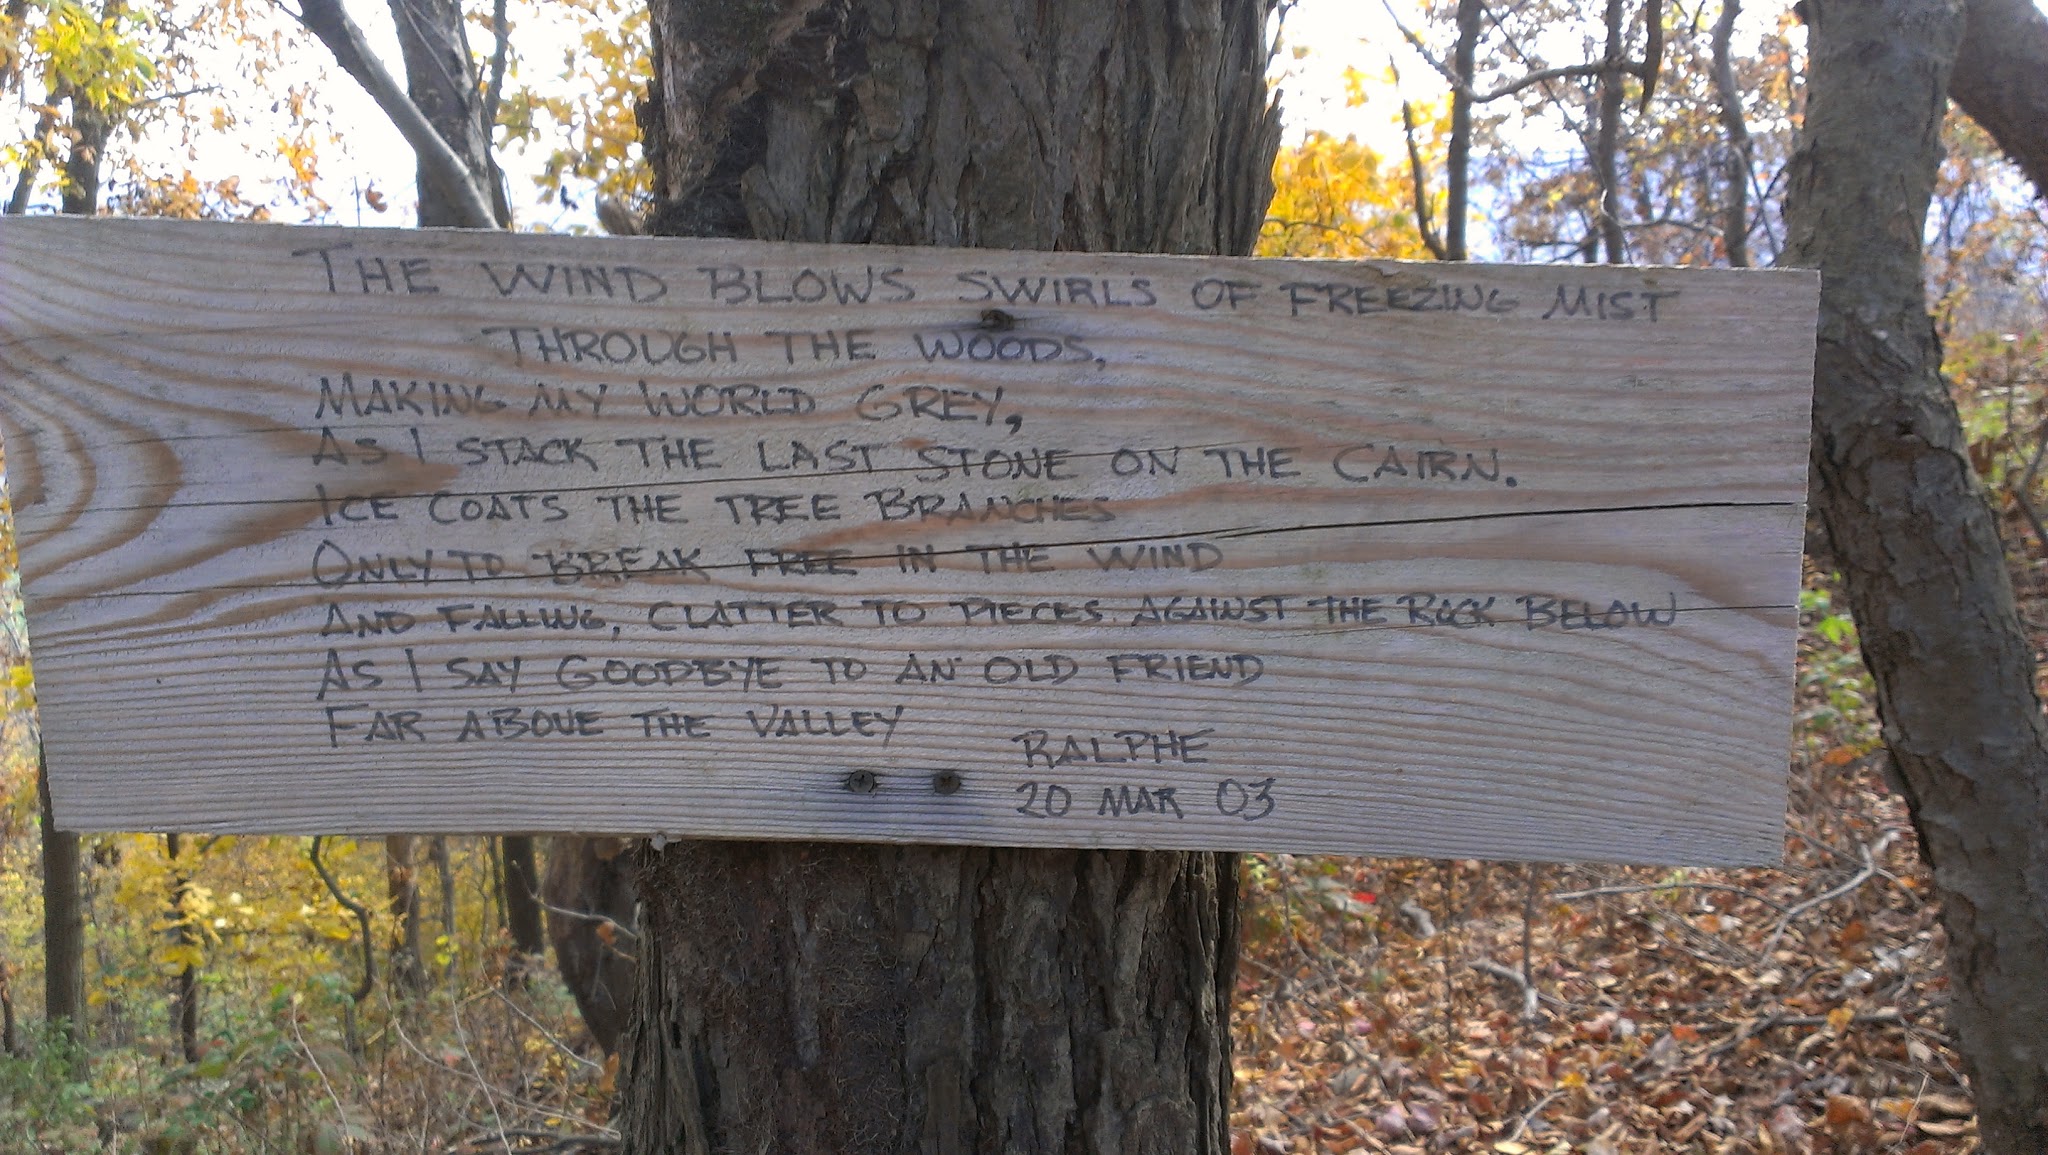 THE WIND BLOWS SWIRLS OF FREEZING MIST
THROUGH THE WOODS,
MAKING MY WORLD GREY,
AS I STACK THE LAST STONE ON THE CAIRN.
ICE COATS THE TREE BRANCHES
ONLY TO BREAK FREE IN THE WIND
AND FALLING, CLATTER TO PIECES AGAINST THE ROCK BELOW
AS I SAY GOODBYE TO AN OLD FRIEND
FAR ABOVE THE VALLEY
RALPHE
20 MAR 03